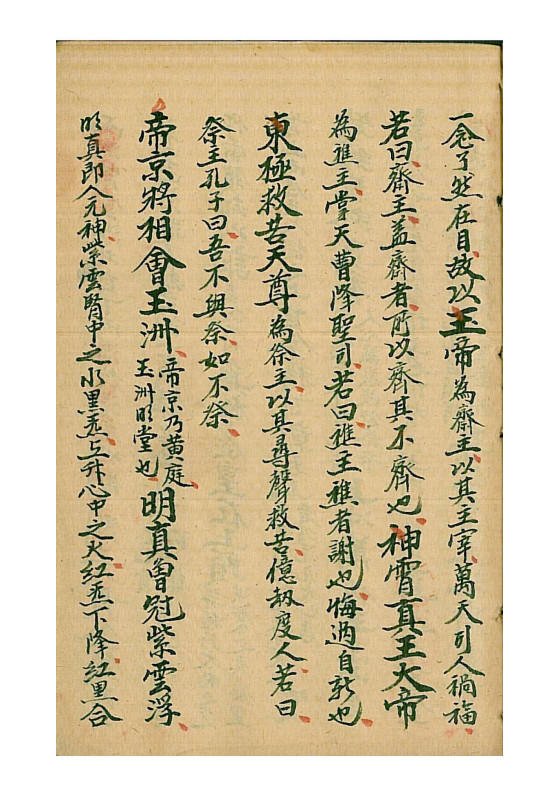 一念了然在目故以玉帝為齋主以其主宰萬天司人禍福
若曰齋主盖齋者所以齋其不齋也神霄真王大帝
為進主掌天曹降聖可若曰進主進者謝也悔過自新也
東極救苦天尊為祭主以其尋聲救苦億劫度人若曰
祭主孔子曰吾不與祭如不祭
帝京將相會玉洲帝京乃黃庭玉洲明堂也明真曾冠紫雲浮
明真即人元神紫雲腎中之水黑炁上升心中之火紅炁下降紅黑合